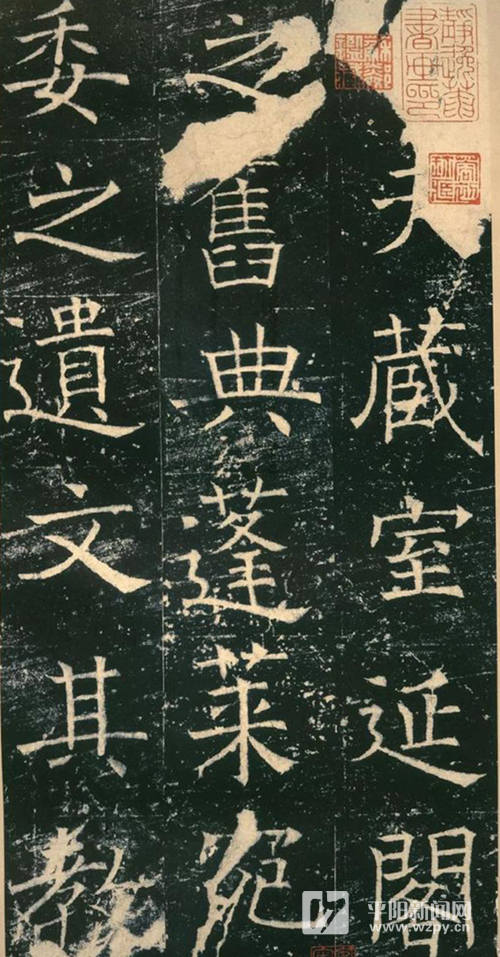 蔵室延閣
之舊典蓬萊宛
委之遺文其教
平阳新闻网
www.wzpy.cn